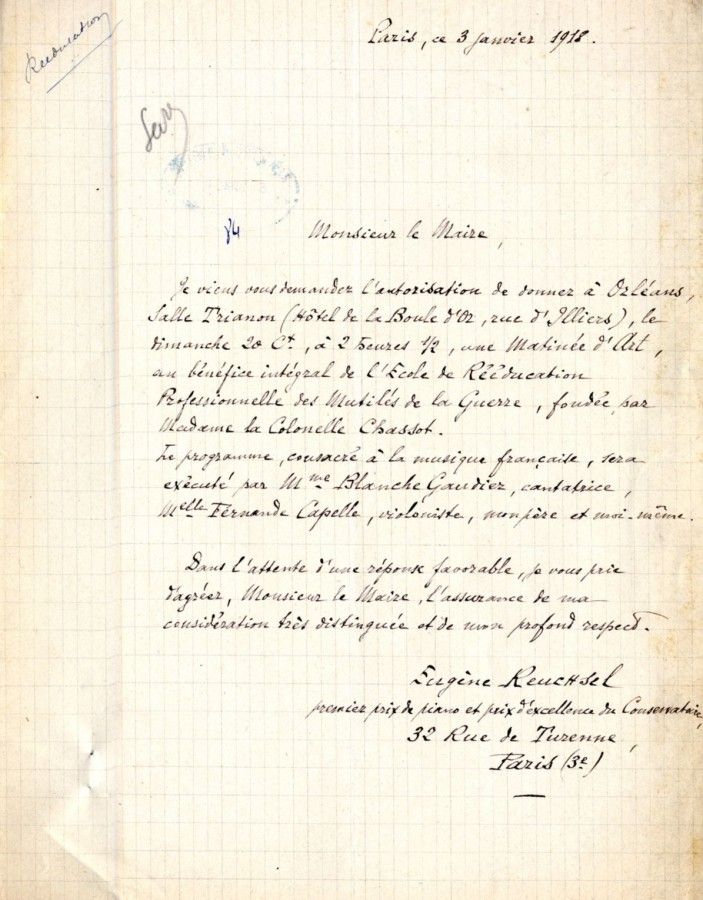 Rééducation
Paris, ce 3 janvier 1918.
84
Monsieur le Maire,
Je viens vous demander l'autorisation de donner à Orléans,
Salle Trianon (Hôtel de la Boule d'Or, rue d'Illiers), le
dimanche 20 Ct, à 2 heures 1/2, une Matinée d'Art,
au bénéfice intégral de l'Ecole de Rééducation
Professionnelle des Mutilés de la Guerre, fondée par
Madame la Colonelle Chassot.
Le programme, consacré à la musique française, sera
exécuté par Mme Blanche Gaudiez, cantatrice,
Melle Fernande Capelle, violoniste, mon père et moi-même.
Dans l'attente d'une réponse favorable, je vous prie
d'agréer, Monsieur le Maire, l'assurance de ma
considération très distinguée et de mon profond respect.
Eugène Reuchsel
premier prix de piano et prix d'excellence du Conservatoire,
32 Rue de Turenne,
Paris (3e)